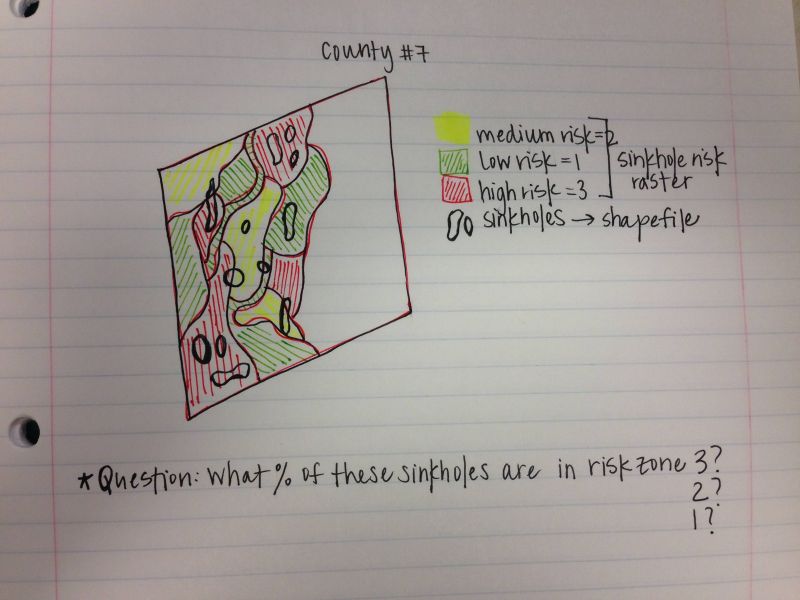 County #7
medium risk=2
low risk =1
high risk =3
sinkhole risk
raster
sinkholes → shapefile
*Question: What % of these sinkholes are in risk zone 3?
2?
1?